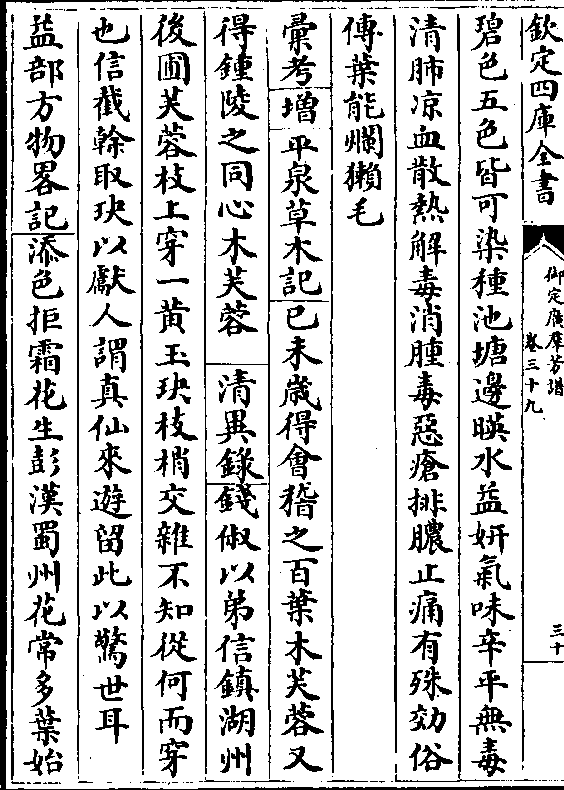 欽定四庫全書
御定廣羣芳譜
卷三十九
三十
碧色五色皆可染種池塘邊暎水益妍氣味辛平無毒
清肺凉血散熱解毒消腫毒惡瘡排膿止痛有殊効俗
傳葉能爛獺毛
彚考增平泉草木記己未歲得會稽之百葉木芙蓉又
得鍾陵之同心木芙蓉 清異錄錢俶以弟信鎮湖州
後圃芙蓉枝上穿一黃玉玦枝梢交雜不知從何而穿
也信截幹取玦以獻人謂真仙來遊留此以驚世耳
益部方物畧記添色拒霜花生彭漢蜀州花常多葉始